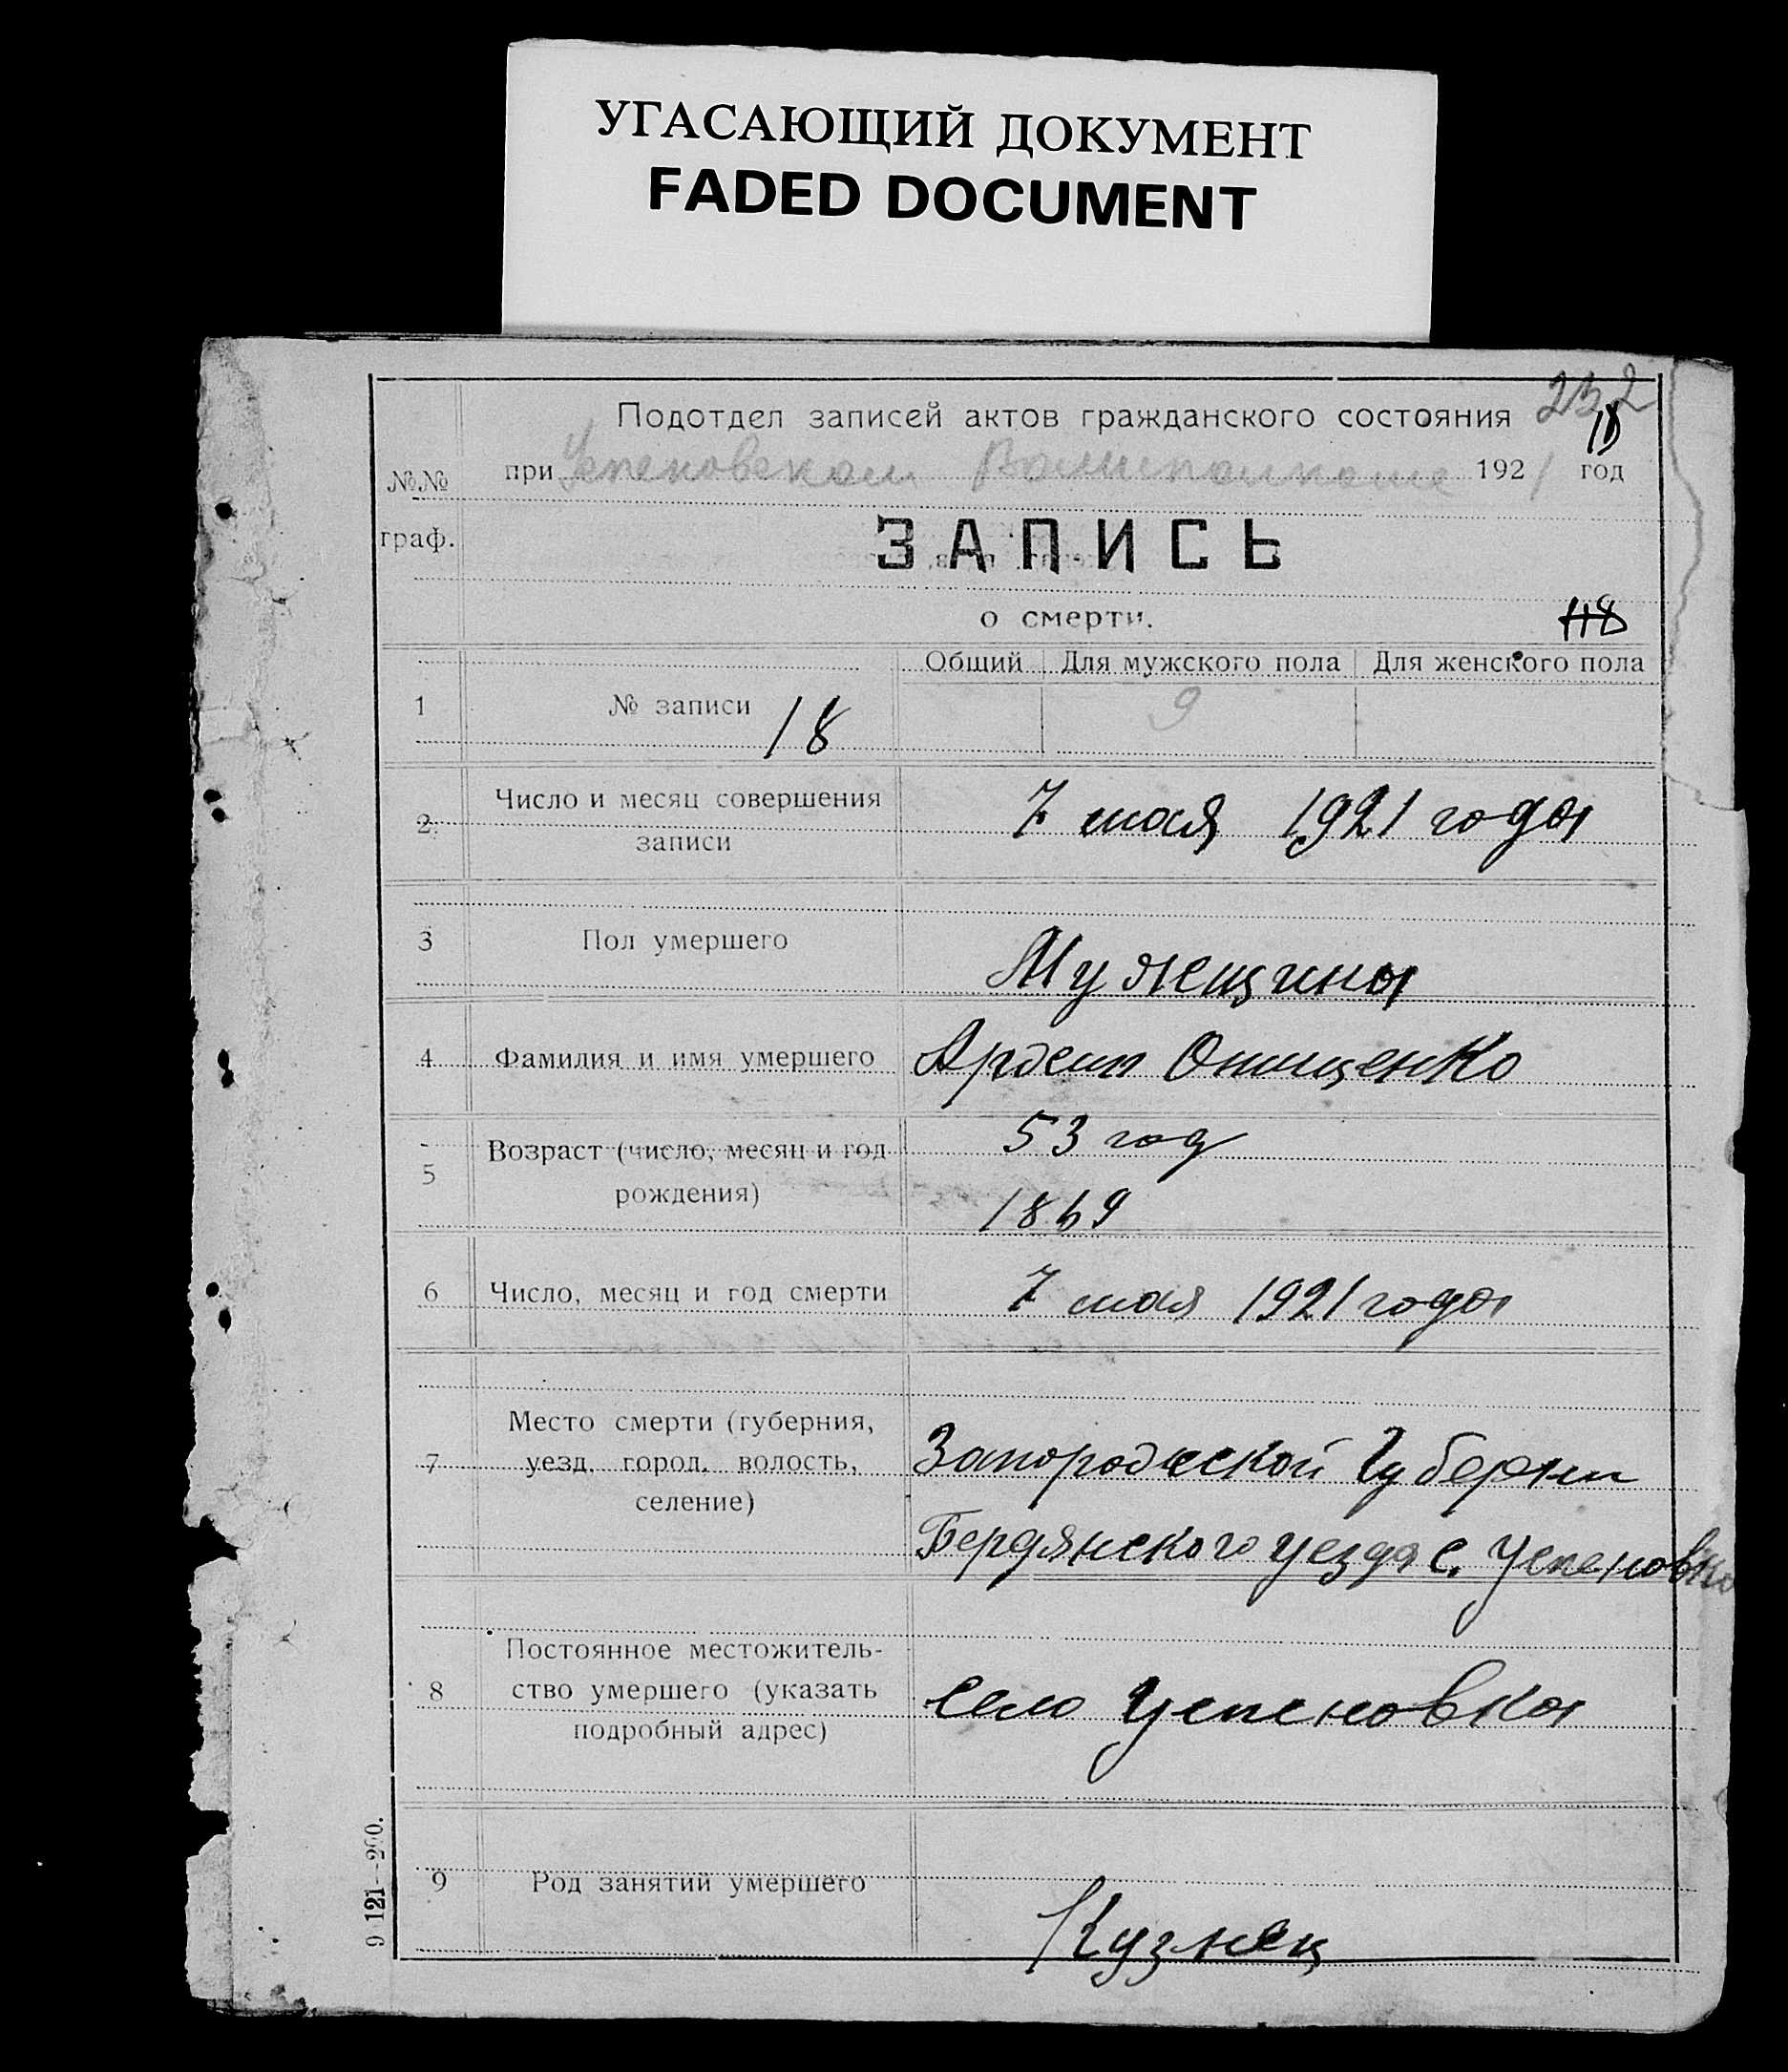 УГАСАЮЩИЙ ДОКУМЕНТ
FADED DOCUMENT
232
Подотдел записей актов гражданского состояния
18
№№ граф.
при Успеновском 1921 год
ЗАПИСЬ
о смерти.
118
Общий Для мужского пола Для женского пола
1 № записи 18 9
2 Число и месяц совершения
записи
7 мая 1921 года
3 Пол умершего
Мужещины
4 Фамилия и имя умершего Онищенко
5 Возраст (число, месяц и год
рождения)
53 год
1869
6 Число, месяц и год смерти 7 мая 1921 года
7 Место смерти (губерния,
уезд, город, волость,
селение)
Губерни
Бердянского уезда с. Успеновка
8 Постоянное местожитель-
ство умершего (указать
подробный адрес)
Село Успеновка
9 Род занятий умершего
Кузнец
9 121—200.